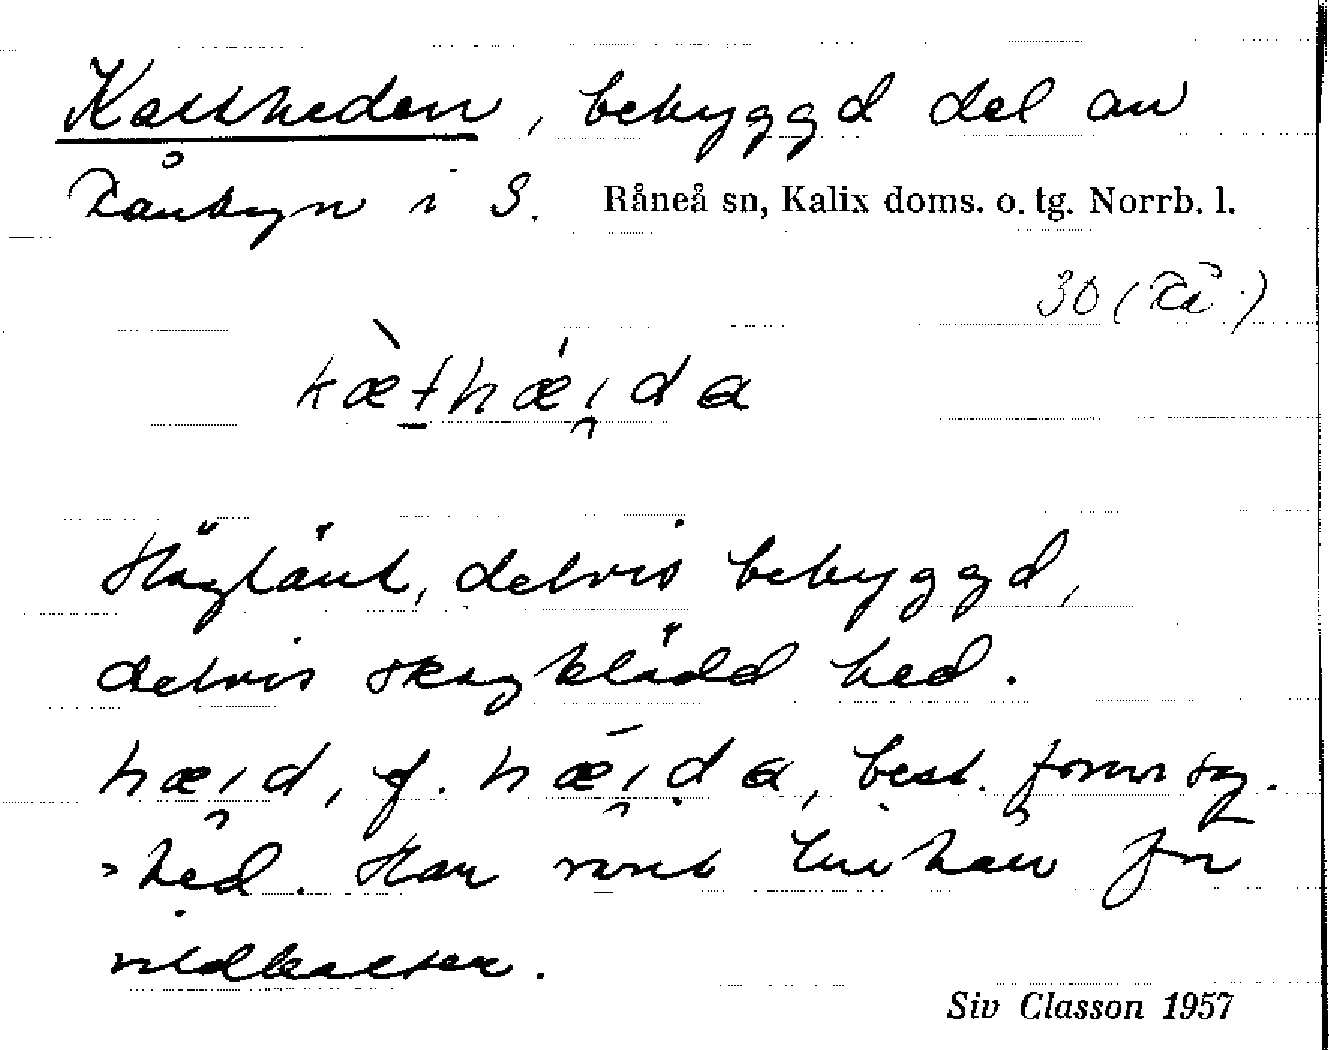 Kattheden, bebyggd del av
Rånbyn i S. Råneå sn, Kalix doms. o. tg. Norrb. l.
30 (Rå.)
kæ̀t̠hǽi̯da
Höglänt, delvis bebyggd,
delvis skogklädd hed.
hæi̯d, f. hǽi̯da, best. form sg.
»hed. Har varit
för
vildkatter.
Siv Classon 1957